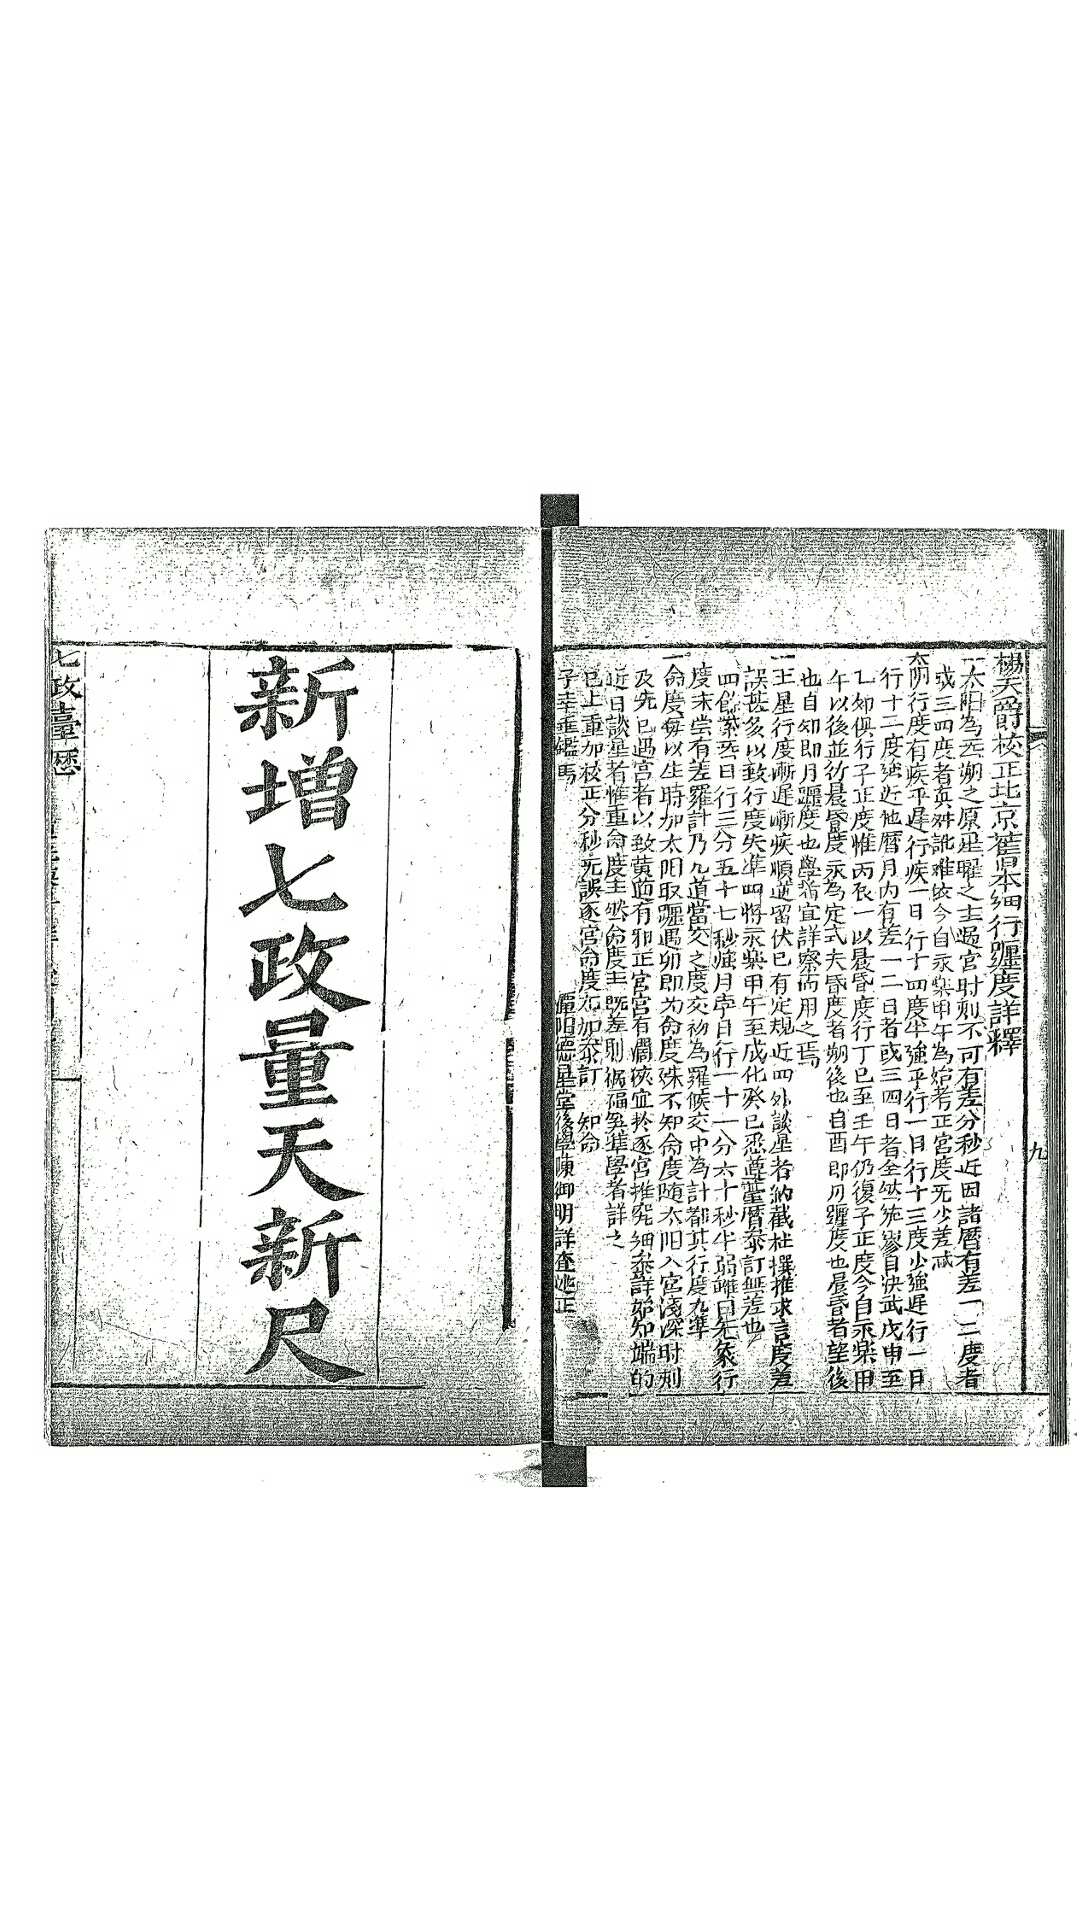 楊天爵校正北京舊本細行躔度詳釋
一太陽為丕朔之原星曜之主過宮时刻不可有差分秒近因諸曆有差一二度者
或三四度者真舛訛難依今自永樂甲午為始考正宮度无少差忒
太阴行度有疾平遲行疾一日行十四度半強平行一日行十三度少強遲行一日
行十二度強近他曆月內有差一二日者或三四日者全然施謬自洪武戊申至
乙卯俱行子正度惟丙辰一以晨昏度行丁巳至壬午仍復子正度今自永樂甲
午以後並依晨昏度永為定式夫昏度者朔後也自酉即月躔度也晨昏者望後
也自卯即月躔度也學者宜詳察而用之焉
一五星行度漸遲漸疾順逆留伏已有定規近四外談星者訥截杜撰推求言度差
誤甚多以致行度失準四將永樂甲午至成化癸巳悉遵臺曆叅訂無差也
四餘紫炁日行三分五十七秒強月孛日行一十一分六十秒半弱離曰先依行
度未尝有差羅計乃九道當交之度交初為羅候交中為計都其行度尤準
一命度每以生時加太阳取躔遇卯即为命度殊不知命度随太阳入宮淺深时刻
及先已過宮者以致黃道有邪正宮宮有濶硤宜於逐宮推究細叅詳始知端的
近日談星者惟重命度主然命度主既差則禍福奚準學者詳之
已上重加校正分秒无誤逐宮命度加叅訂 知命
子幸垂鑑焉 陽德星堂後學陳御明詳查姚正
九
新增七政量天新尺
七政臺歷